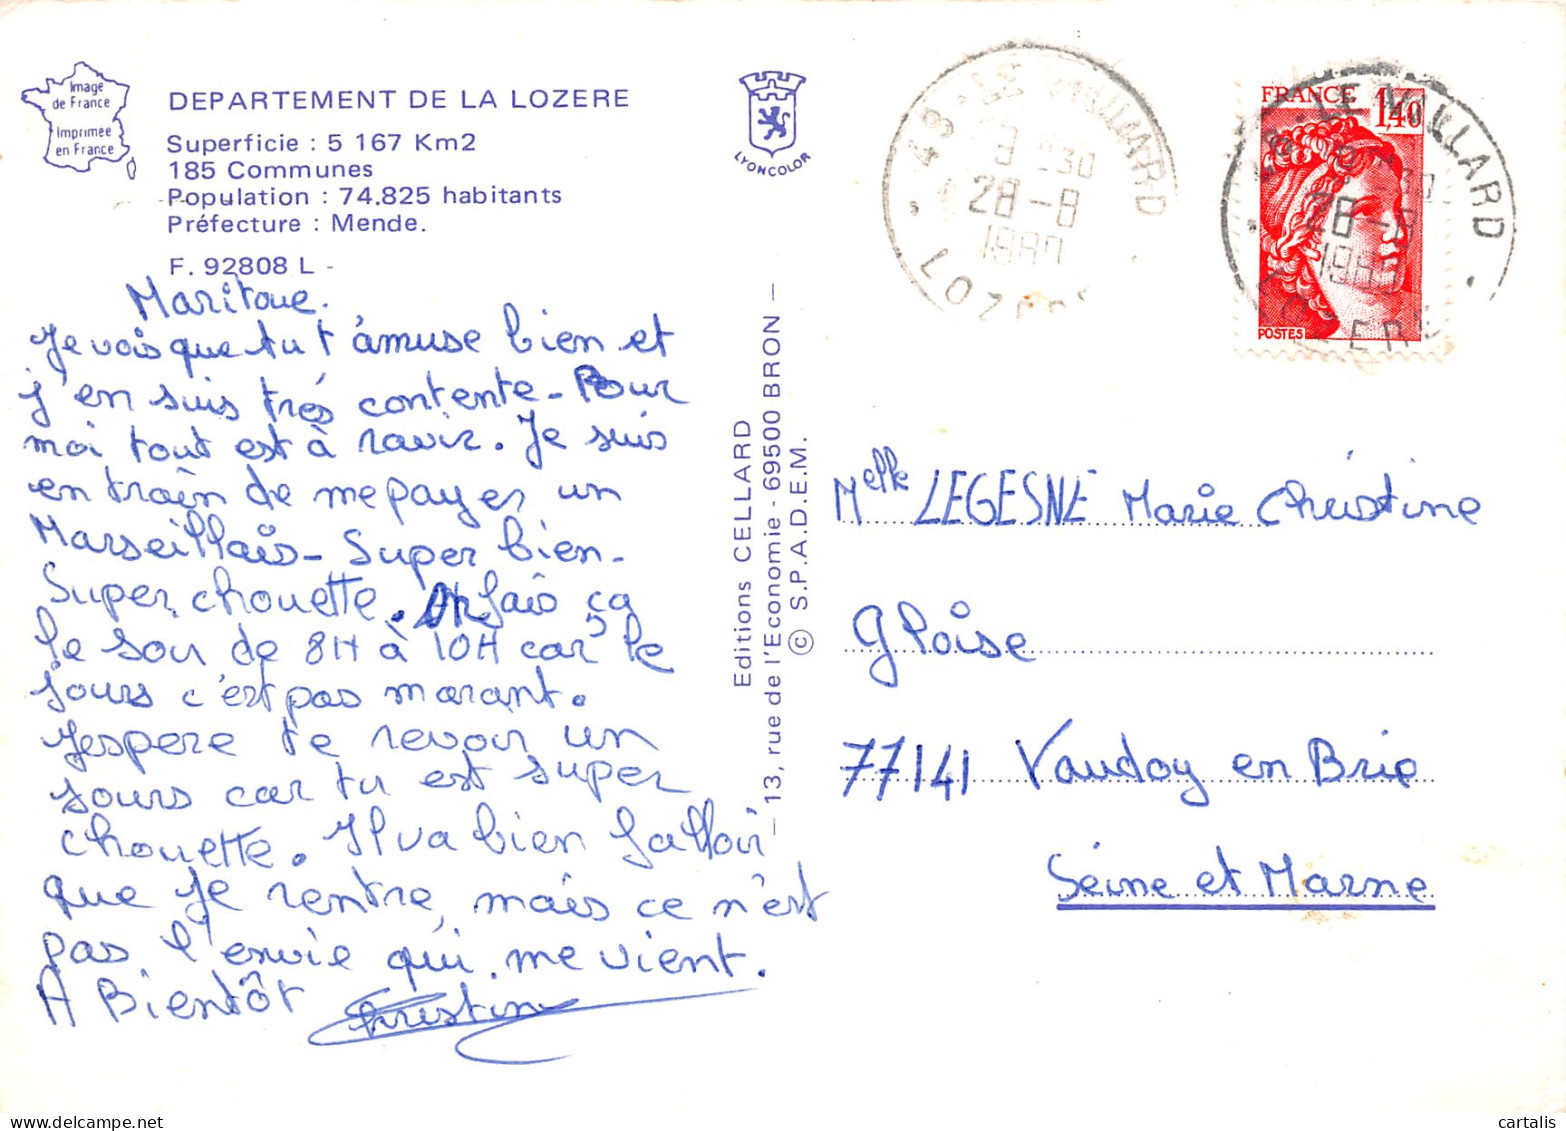 Image
de France
Imprimée
en France
DEPARTEMENT DE LA LOZERE
Superficie : 5 167 Km2
185 Communes
Population : 74.825 habitants
Préfecture : Mende.
F. 92808 L -
LYONCOLOR
Maritoue.
Je vois que tu t'amuse bien et
j'en suis très contente - Pour
moi tout est à ravir. Je suis
en train de me payer un
Marseillais - Super bien -
Super chouette. fais ça
le soir de 8H à 10H car le
jours c'est pas marant.
J'espere te revoir un
jours car tu est super
chouette. Il va bien falloir
que je rentre, mais ce n'est
pas l'envie qui me vient.
A Bientôt Christine
Editions CELLARD
— 13, rue de l'Economie - 69500 BRON —
© S.P.A.D.E.M.
48 - LE
28 - 8
1980
LOZERE
FRANCE 1,40
POSTES
LE
28 - 8
1980
LOZERE
Melle LEGESNE Marie Christine
Gloise
77141 Vaudoy en Brie
Seine et Marne
cartalis